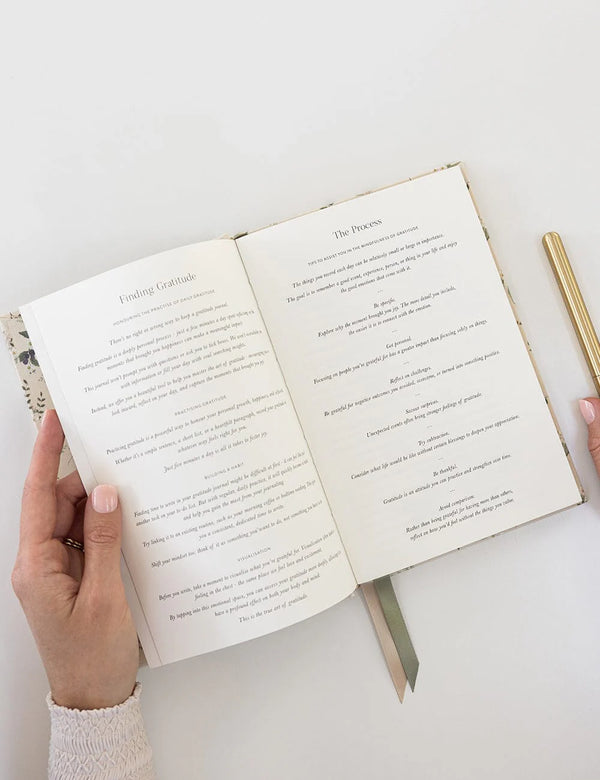 Finding Gratitude
HONOURING THE PRACTISE OF DAILY GRATITUDE
There's no right or wrong way to keep a gratitude journal.
Finding gratitude is a deeply personal process - just a few minutes a day spent reflecting on
moments that brought you happiness can make a meaningful impact.
This journal won't prompt you with questions or ask you to tick boxes. We won't overwhelm you
with information or fill your day with soul searching might.
Instead, we offer you a beautiful tool to help you master the art of gratitude
look inward, reflect on your day, and capture the moments that brought you joy.
PRACTISING GRATITUDE
Practising gratitude is a powerful way to honour your personal growth, happiness, and
Whether it's a simple sentence, a short list, or a heartfelt paragraph, word you
whatever way feels right for you.
Just five minutes a day is all it takes to foster joy.
BUILDING A HABIT
Finding time to write in your gratitude journal might be difficult at first - it can feel like
another task on your to do list. But with regular, daily practice, it will quickly
and help you gain the most from your journaling.
Try linking it to an existing routine, such as your morning coffee or bedtime
you a consistent, dedicated time to write.
Shift your mindset too; think of it as something you want to do, not something you
VISUALISATION
Before you write, take a moment to visualise what you're grateful for. Visualisation
feeling in the chest - the same place we feel love and excitement.
By tapping into this emotional space, you can access your gratitude more deeply, allowing it
have a profound effect on both your body and mind.
This is the true art of gratitude.
The Process
TIPS TO ASSIST YOU IN THE MINDFULNESS OF GRATITUDE
The things you record each day can be relatively small or large in importance.
The goal is to remember a good event, experience, person, or thing in your life and enjoy
the good emotions that come with it.
Be specific.
Explore why the moment brought you joy. The more detail you include,
the easier it is to connect with the emotion.
Get personal.
Focusing on people you're grateful for has a greater impact than focusing solely on things.
Reflect on challenges.
Be grateful for negative outcomes you avoided, overcame, or turned into something positive.
Savour surprises.
Unexpected events often bring stronger feelings of gratitude.
Try subtraction.
Consider what life would be like without certain blessings to deepen your appreciation.
Be thankful.
Gratitude is an attitude you can practise and strengthen over time.
Avoid comparison.
Rather than being grateful for having more than others,
reflect on how you'd feel without the things you value.